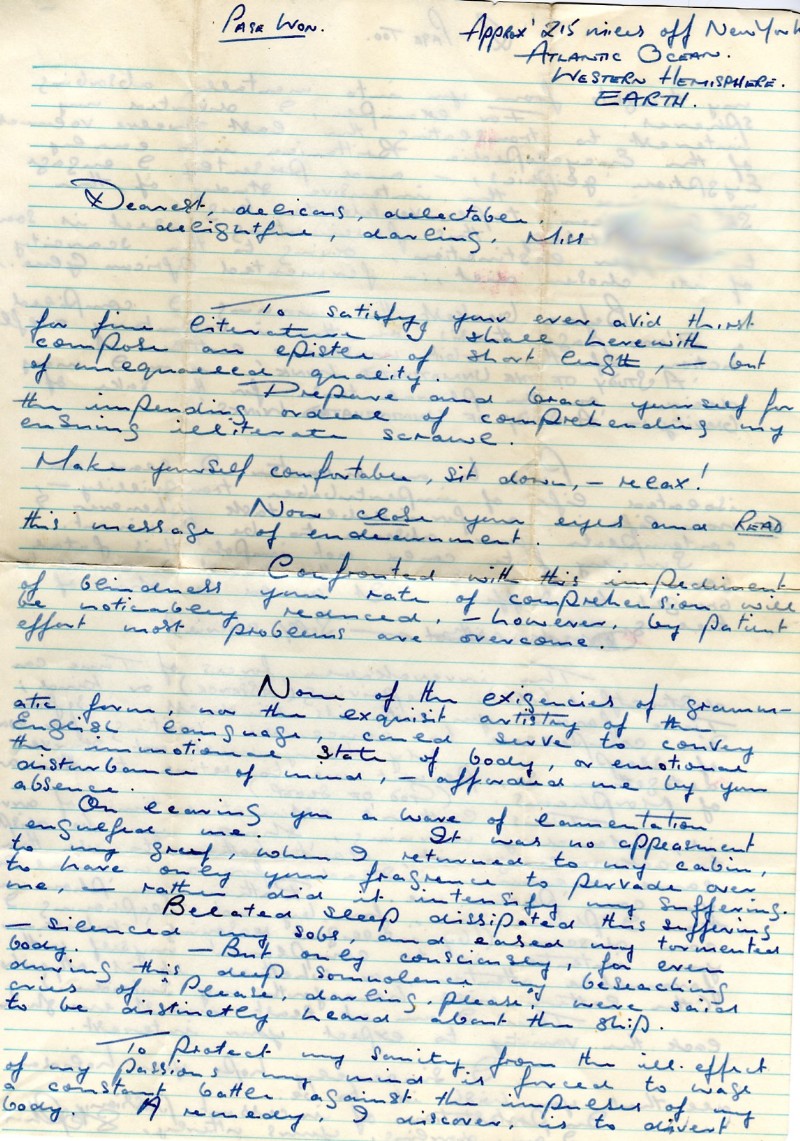 Page Won.
Approx' 215 miles off New York
Atlantic Ocean.
Western Hemisphere.
EARTH.
Dearest, delicous, delectable,
delightful, darling, Miss
To satisfy your ever avid thirst
for fine literature I shall herewith
compose an epistle of short length, – but
of unequalled quality.
Prepare and brace yourself for
the impending ordeal of comprehending my
ensuing illiterate scrawl.
Make yourself comfortable, sit down, – relax!
Now close your eyes and READ
this message of endearment.
Confronted with this impediment
of blindness your rate of comprehension will
be noticabley reduced, – however, by patient
effort most problems are overcome.
None of the exigencies of gramm-
atic form, nor the exquisit artistry of the
English language, could serve to convey
the immotional state of body, or emotional
disturbance of mind, – afforded me by your
absence.
On leaving you a wave of lamentation
engulfed me. It was no appeasment
to my greif, when I returned to my cabin,
to have only your fragrence to pervade over
me, – rather did it intensify my suffering.
Belated sleep dissipated this suffering
– silenced my sobs, and eased my tormented
body. – But only consciously, for even
during this deep somnolence my beseaching
cries of "Please, darling, please" were said
to be distinctly heard about the ship.
To protect my sanity from the ill effect
of my passions my mind is forced to wage
a constant battle against the impulses of my
body. A remedy, I discover, is to divert